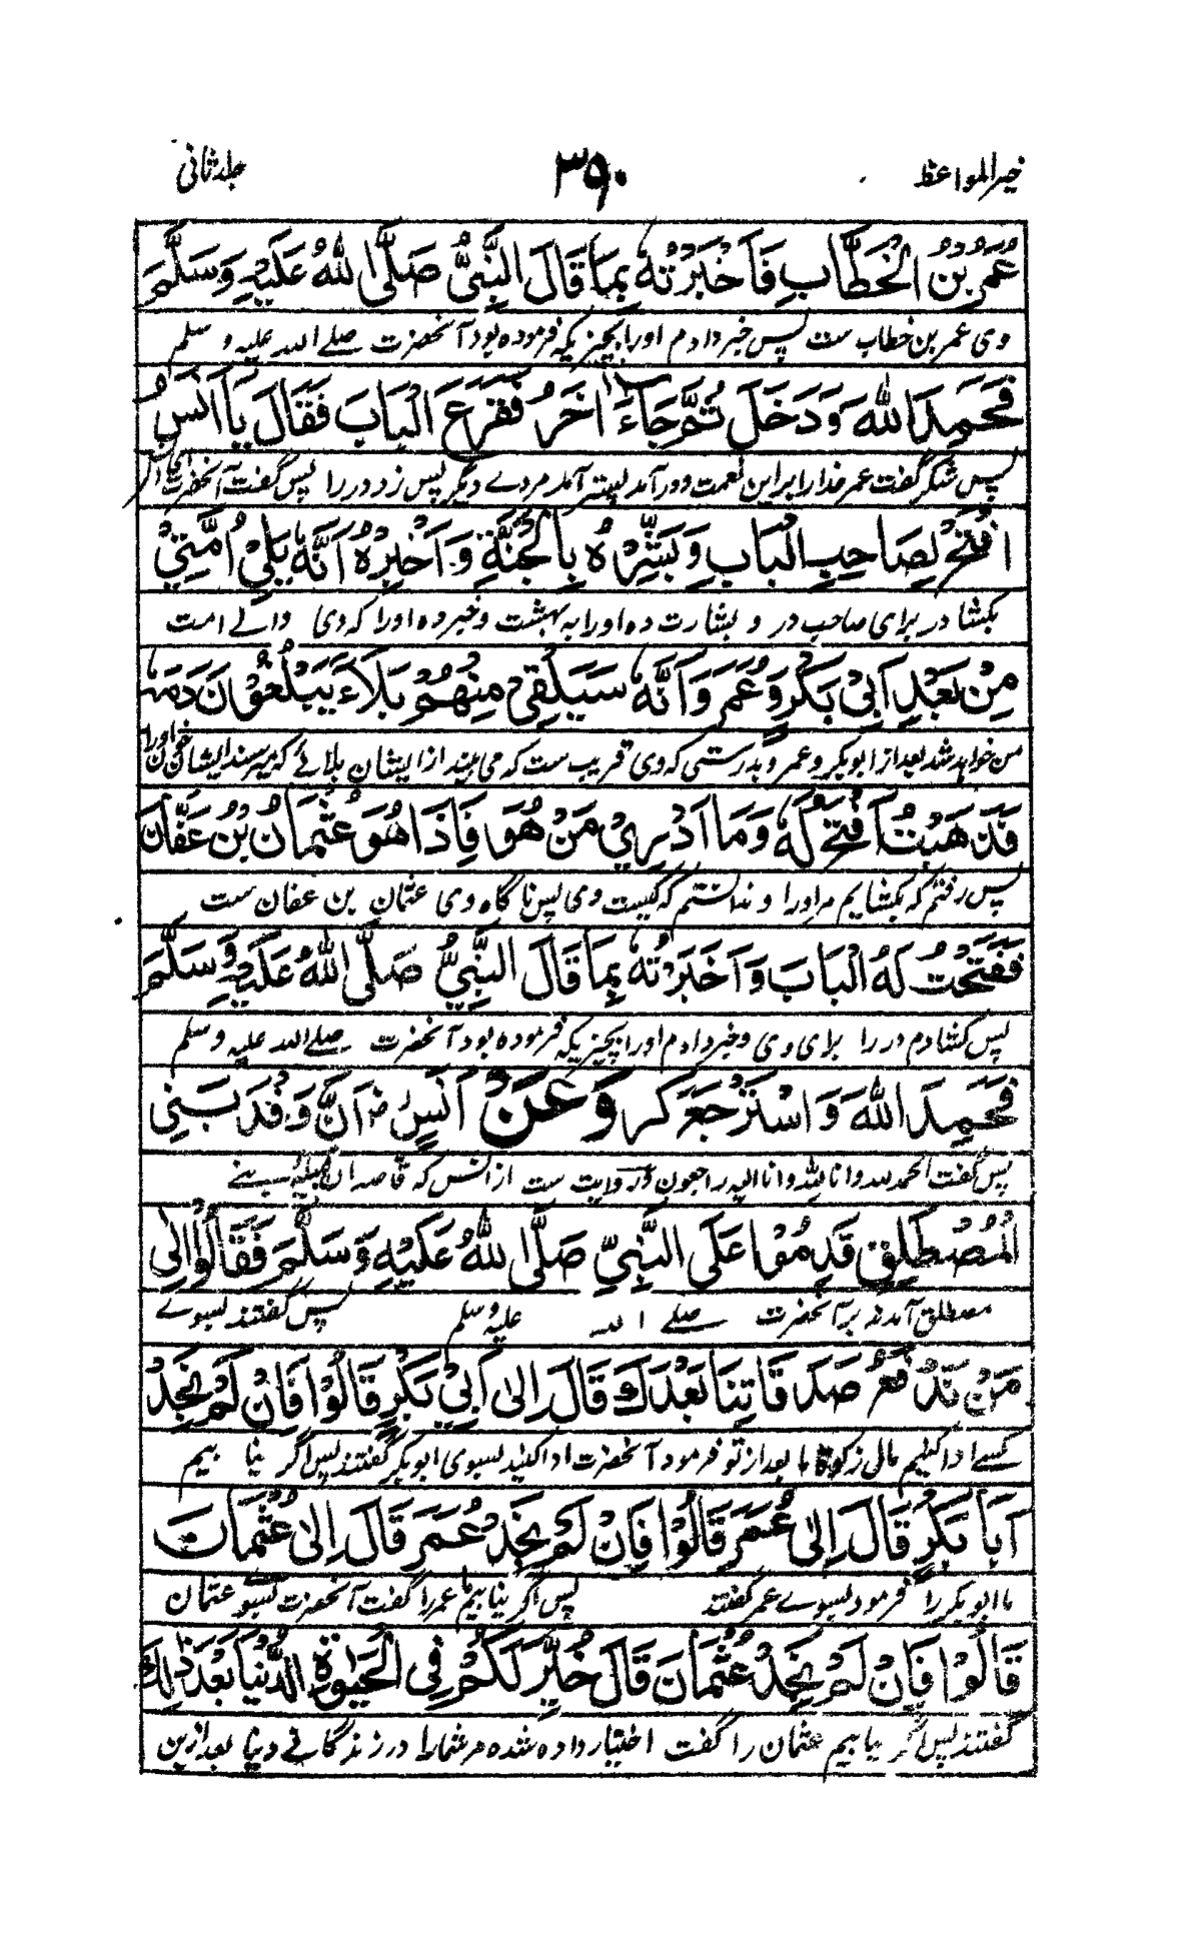 خیر المواعظ ۳۵۰ جلد ثانی
عُمَرُ بْنُ الْخَطَّابِ فَاَخْبَرْتُهُ بِمَا قَالَ النَّبِیُّ صَلَّی اللهُ عَلَیْهِ وَسَلَّمَ
وی عمر بن خطاب ست پس خبر دادم اورا بچیزیکه فرموده بود آنحضرت صلے الله علیه و سلم
فَحَمِدَ اللهَ وَدَخَلَ ثُمَّ جَاءَ اٰخَرُ فَقَرَعَ الْبَابَ فَقَالَ یَا اَنَسُ
پس شکر گفت عمر خدا را بر این نعمت و در آمد پستر آمد مردے دیگر پس زد در را پس گفت آنحضرت
افْتَحْ لِصَاحِبِ الْبَابِ وَبَشِّرْهُ بِالْجَنَّةِ وَاَخْبِرْهُ اَنَّهُ یَلِیْ اُمَّتِیْ
بکشا در برای صاحب در و بشارت ده اورا به بهشت و خبر ده اورا که وی والے امت
مِنْ بَعْدِ اَبِیْ بَکْرٍ وَّعُمَرَ وَاَنَّهُ سَیَلْقٰی مِنْهُمْ بَلَاءً یَبْلُغُوْنَ دَمَهُ
من خواهد شد بعد از ابوبکر و عمر و بدرستی که وی قریب ست که می بیند از ایشان بلائے که میرسند ایشان خون اورا
فَذَهَبْتُ اَفْتَحُ لَهُ وَمَا اَدْرِیْ مَنْ هُوَ فَاِذَا هُوَ عُثْمَانُ بْنُ عَفَّانَ
پس رفتم که بکشایم مر اورا و ندانستم که کیست وی پس ناگاه وی عثمان بن عفان ست
فَفَتَحْتُ لَهُ الْبَابَ وَاَخْبَرْتُهُ بِمَا قَالَ النَّبِیُّ صَلَّی اللهُ عَلَیْهِ وَسَلَّمَ
پس کشادم در را برای وی و خبر دادم اورا بچیزیکه فرموده بود آنحضرت صلے الله علیه و سلم
فَحَمِدَ اللهَ وَاسْتَرْجَعَ کر وَعَنْ اَنَسٍ رض اَنَّ وَفْدَ بَنِی
پس گفت الحمد لله و انا لله و انا الیه راجعون و روایت ست از انس که قاصدان قبیله بنے
الْمُصْطَلِقِ قَدِمُوْا عَلَی النَّبِیِّ صَلَّی اللهُ عَلَیْهِ وَسَلَّمَ فَقَالُوْا اِلٰی
مصطلق آمدند بر آنحضرت صلے الله علیه وسلم پس گفتند بسوے
مَنْ نَدْفَعُ صَدَقَاتِنَا بَعْدَكَ قَالَ اِلٰی اَبِیْ بَکْرٍ قَالُوْا فَاِنْ لَمْ نَجِدْ
کسے ادا کنیم مال زکوة ما بعد از تو فرمود آنحضرت ادا کنید بسوی ابوبکر گفتند پس اگر نیا بیم
اَبَا بَکْرٍ قَالَ اِلٰی عُمَرَ قَالُوْا فَاِنْ لَمْ نَجِدْ عُمَرَ قَالَ اِلٰی عُثْمَانَ
ما ابوبکر را فرمود بسوے عمر گفتند پس اگر نیا بیم ما عمر را گفت آنحضرت بسوے عثمان
قَالُوْا فَاِنْ لَمْ نَجِدْ عُثْمَانَ قَالَ خُیِّرَ لَکُمْ فِی الْحَیٰوةِ الدُّنْیَا بَعْدَ ذٰلِكَ
گفتند پس اگر نیا بیم عثمان را گفت اختیار داده شده مر شما را در زندگانے دنیا بعد ازین